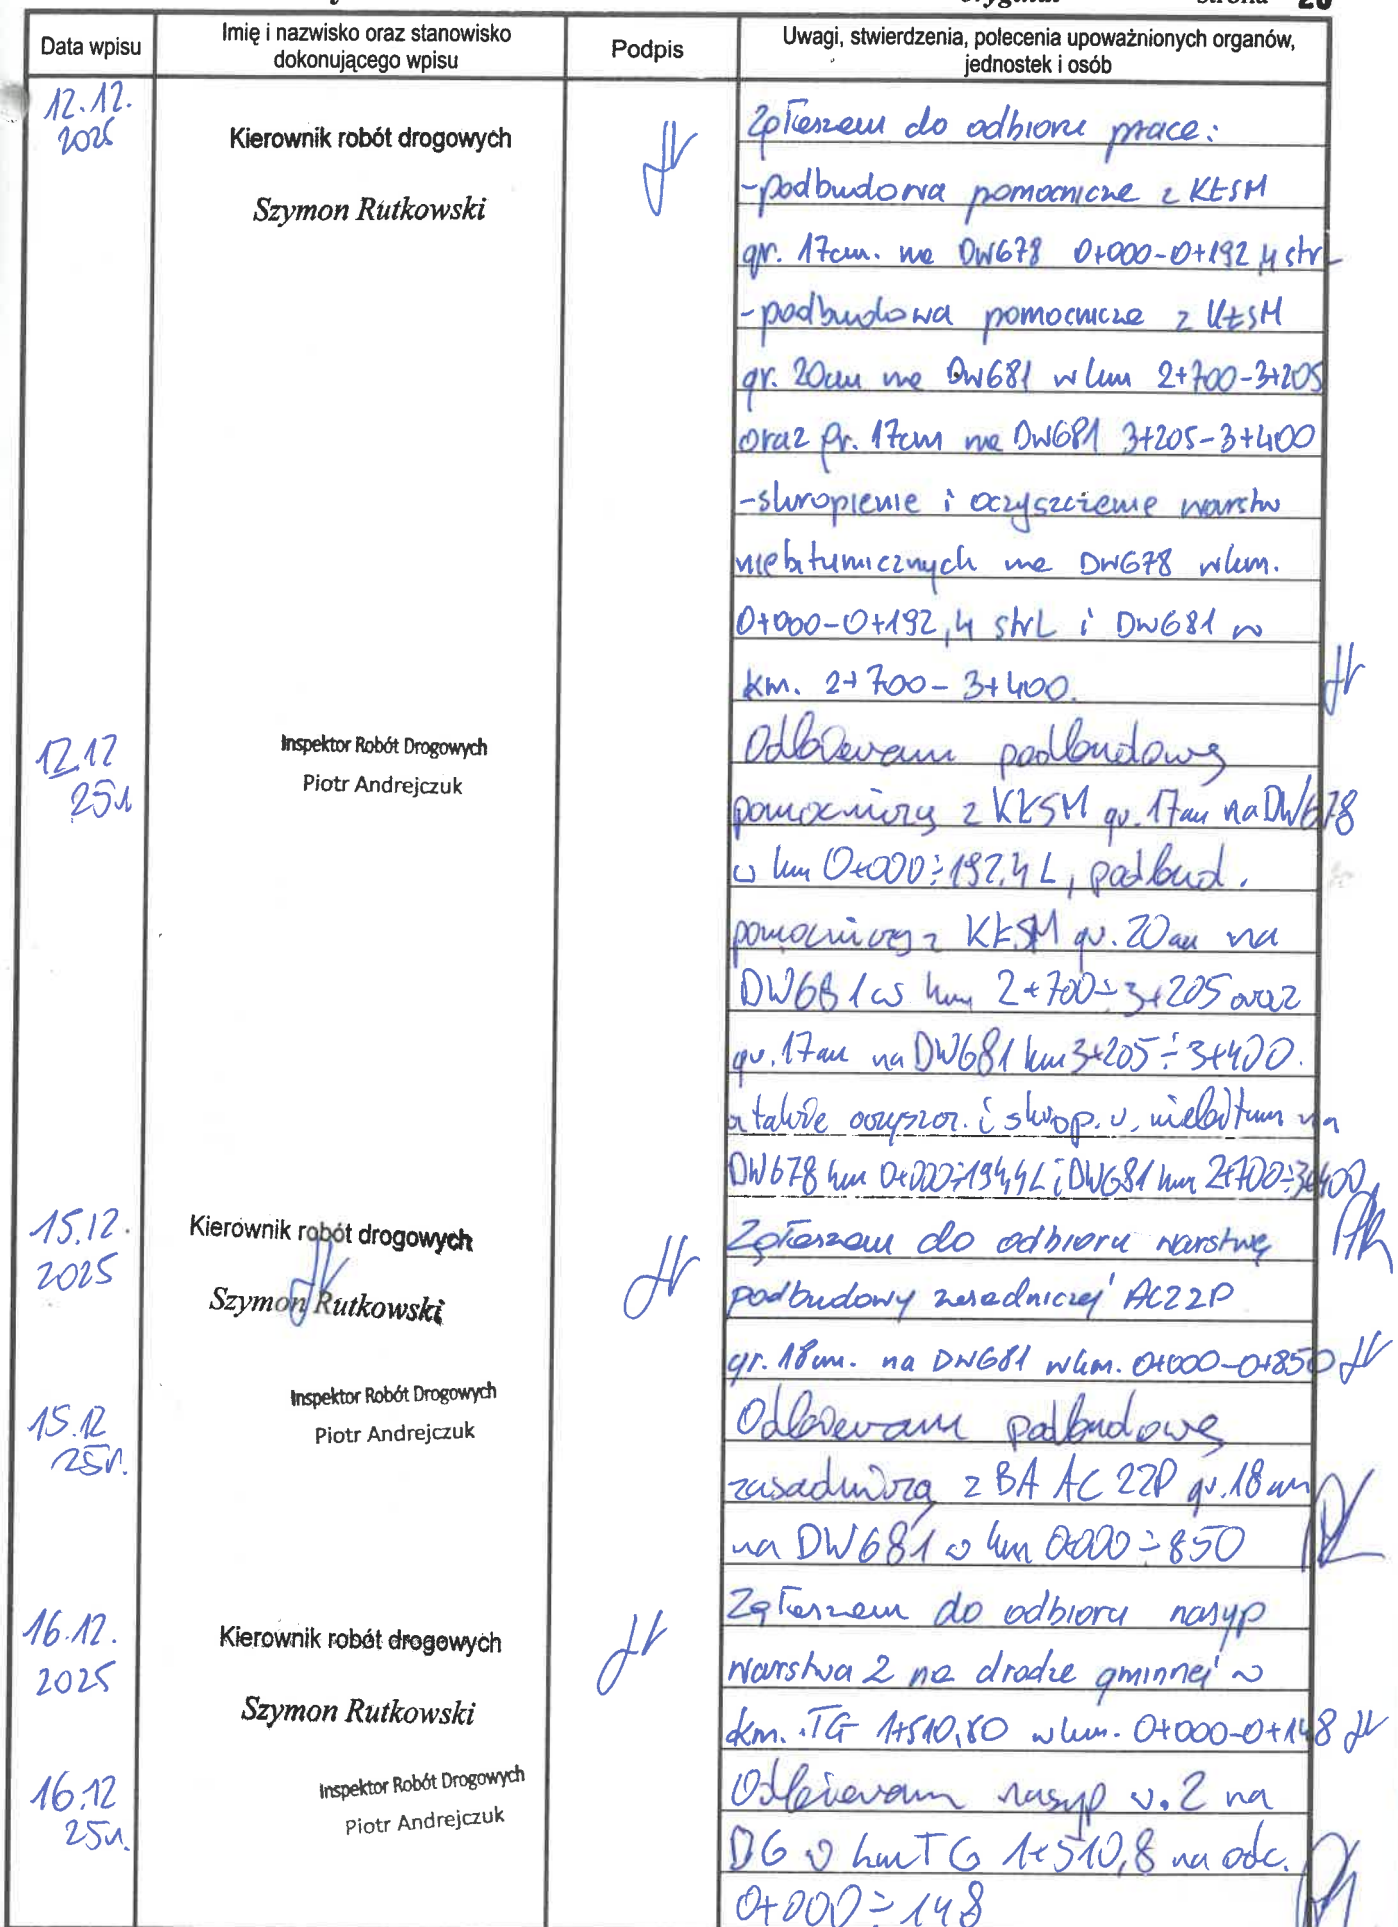 oryginał strona 20
Data wpisu
Imię i nazwisko oraz stanowisko
dokonującego wpisu
Podpis
Uwagi, stwierdzenia, polecenia upoważnionych organów,
jednostek i osób
12.12.
2025
Kierownik robót drogowych
Szymon Rutkowski
Zgłaszam do odbioru prace:
-podbudowa pomocnicze z KŁSM
gr. 17cm. na DW678 0+000-0+192,4 str L
-podbudowa pomocnicza z KŁSM
gr. 20cm na DW681 w km 2+700-3+205
oraz gr. 17cm na DW681 3+205-3+400
-skropienie i oczyszczenie warstw
niebitumicznych na DW678 w km.
0+000-0+192,4 strL i DW681 w
km. 2+700-3+400.
12.12
25r
Inspektor Robót Drogowych
Piotr Andrejczuk
Odbieram podbudowę
pomocniczą z KŁSM gr. 17cm na DW678
w km 0+000÷192,4 L, podbud.
pomocniczą z KŁSM gr. 20cm na
DW681 w km 2+700÷3+205 oraz
gr. 17cm na DW681 km 3+205÷3+400.
a także oczyszcz. i skrop. w. niebitum na
DW678 km 0+000÷194,4L i DW681 km 2+700÷3+400
15.12.
2025
Kierownik robót drogowych
Szymon Rutkowski
Zgłaszam do odbioru warstwę
podbudowy zasadniczej AC22P
gr. 18cm. na DW681 w km. 0+000-0+850
15.12
25r.
Inspektor Robót Drogowych
Piotr Andrejczuk
Odbieram podbudowę
zasadniczą z BA AC 22P gr. 18cm
na DW681 w km 0+000÷850
16.12.
2025
Kierownik robót drogowych
Szymon Rutkowski
Zgłaszam do odbioru nasyp
warstwa 2 na drodze gminnej w
km. TG 1+510,80 w km. 0+000-0+148
16.12
25r.
Inspektor Robót Drogowych
Piotr Andrejczuk
Odbieram nasyp w. 2 na
DG w km TG 1+510,8 na odc.
0+000÷148